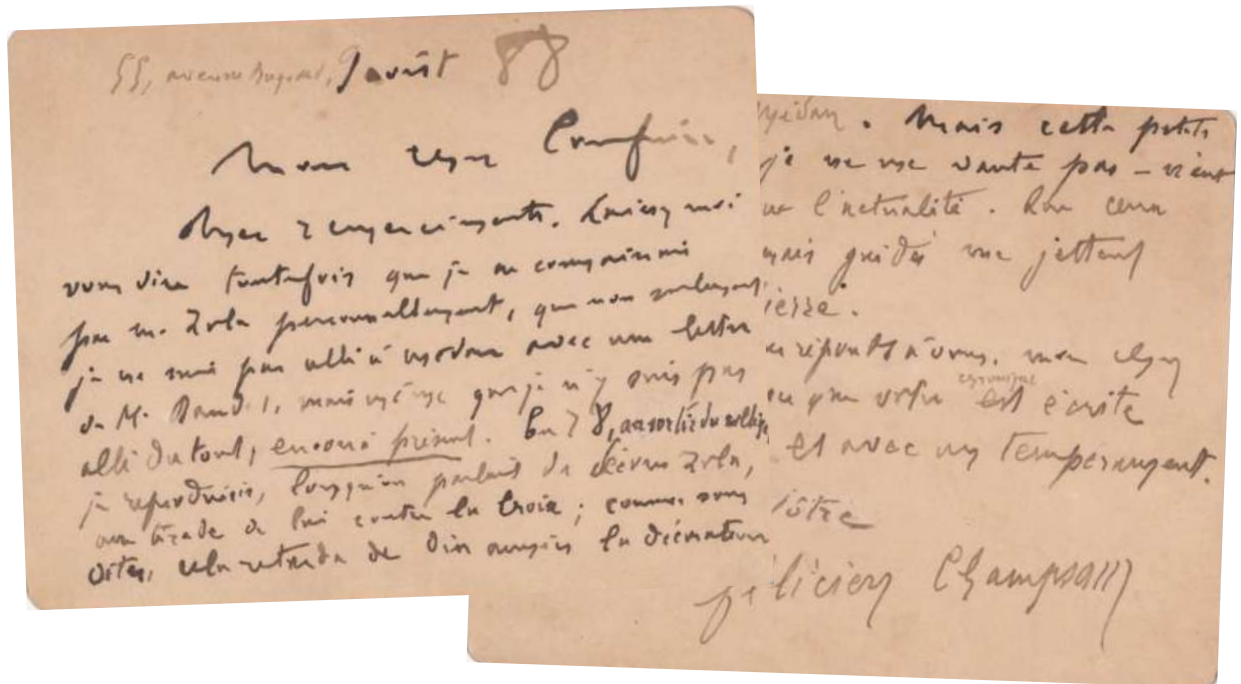 55, avenue Bugeaud, 9 août 88
Mon cher Confrère,
Mes remerciements. Laissez moi
vous dire toutefois que je ne connais
pas M. Zola personnellement, que non seulement
je ne suis pas allé à Médan avec une lettre
de M. Daudet, mais même que je n'y suis pas
allé du tout, encore à présent. En 78, au sortir du collège,
je reproduisis, lorsqu'on parlait de décorer Zola,
une tirade de lui contre la croix ; comme vous
dites, cela retarda de dix années la décoration
Médan. Mais cette petite
je ne me vante pas – vient
l'actualité. Don
mais guidé me jettent
pierre.
réponds à vous, mon cher
que votre chronique est écrite
et avec un tempérament.
Vôtre
Félicien Champsaur